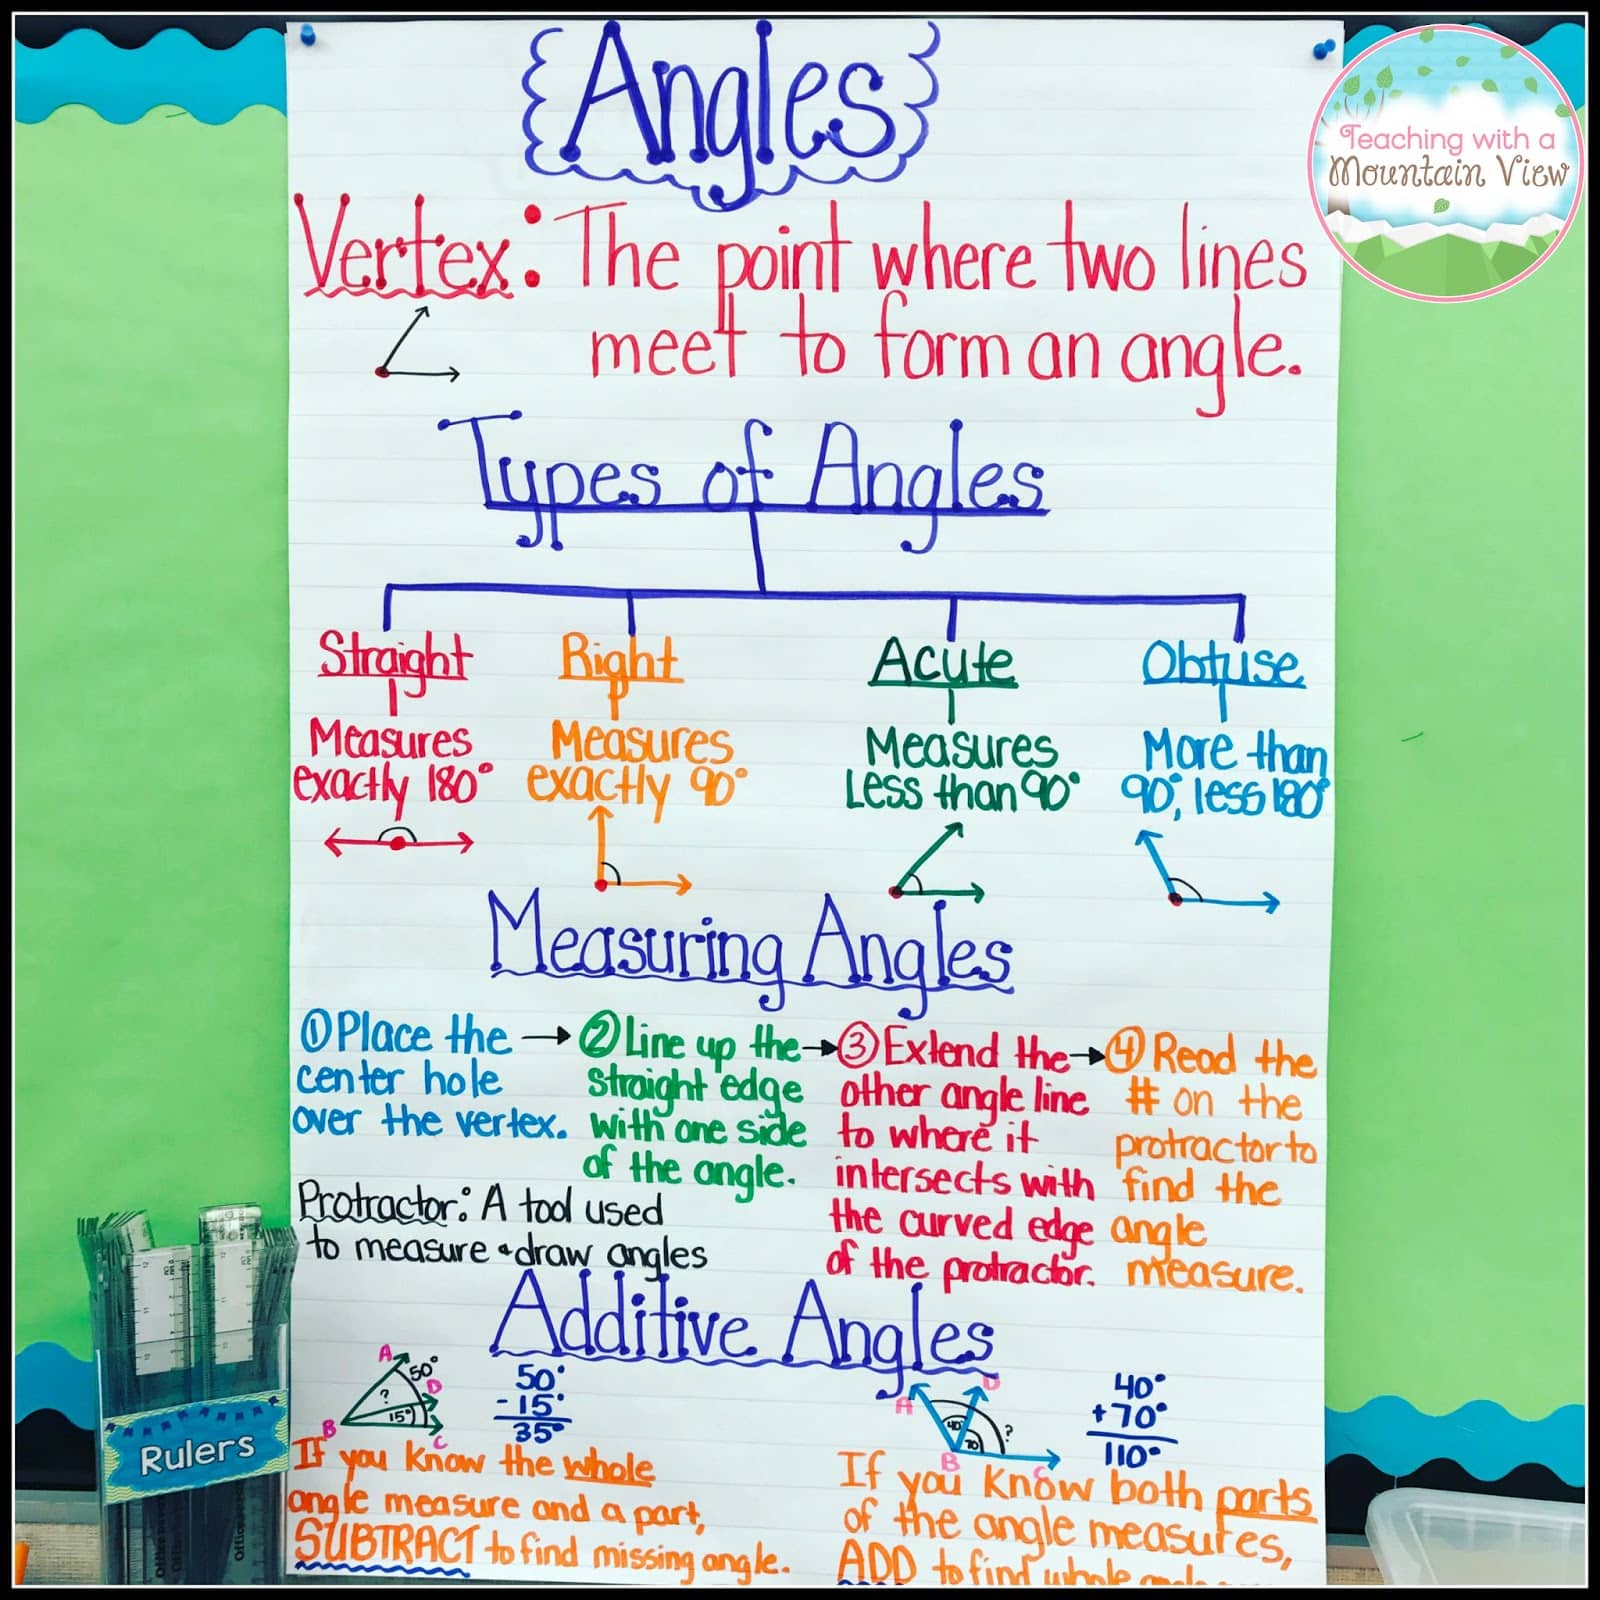 Angles
Teaching with a
Mountain View
Vertex: The point where two lines
meet to form an angle.
Types of Angles
Straight
Measures
exactly 180°
Right
Measures
exactly 90°
Acute
Measures
Less than 90°
Obtuse
More than
90°, less 180°
Measuring Angles
① Place the
center hole
over the vertex.
② Line up the
straight edge
with one side
of the angle.
③ Extend the
other angle line
to where it
intersects with
the curved edge
of the protractor.
④ Read the
# on the
protractor to
find the
angle
measure.
Protractor: A tool used
to measure & draw angles
Additive Angles
A
50°
D
?
15°
B
C
50°
- 15°
35°
If you know the whole
angle measure and a part,
SUBTRACT to find missing angle.
A
D
40°
?
70°
B
C
40°
+ 70°
110°
If you know both parts
of the angle measures,
ADD to find whole
Rulers